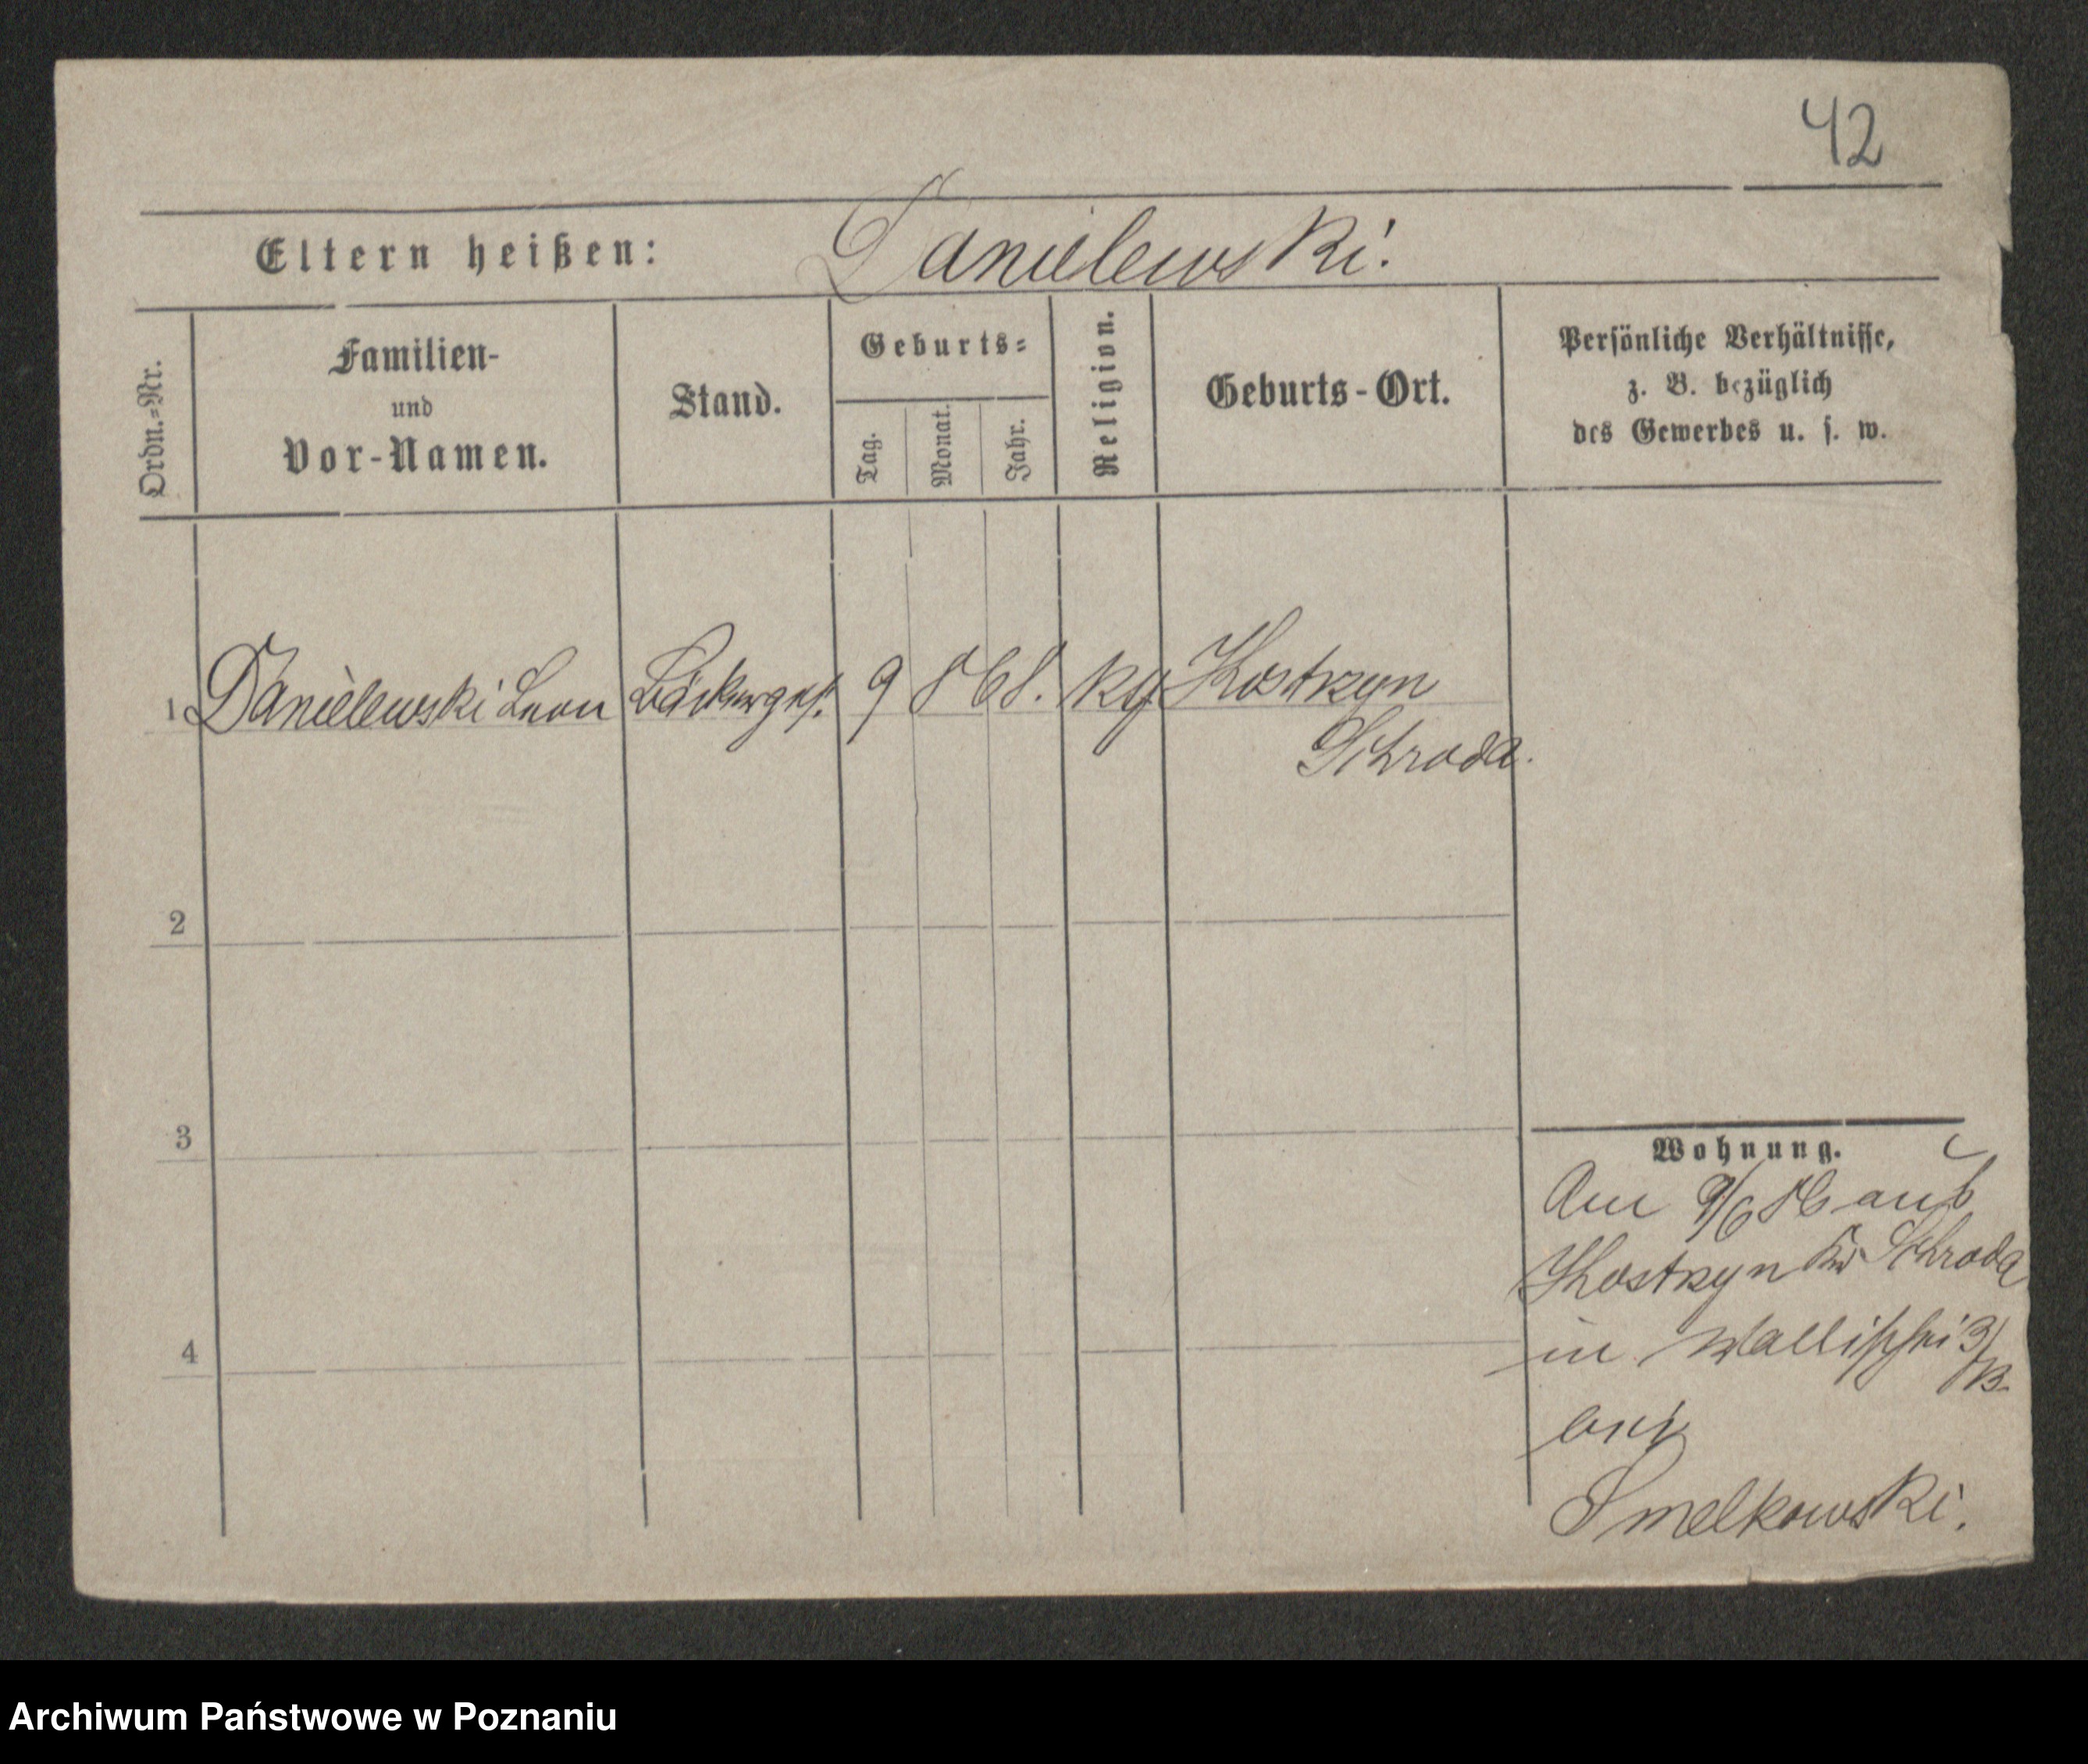 42
Eltern heißen: Danielewski.
Ordn.=Nr.
Familien-
und
Vor-Namen.
Stand.
Geburts=
Tag. Monat. Jahr.
Religion.
Geburts-Ort.
Persönliche Verhältnisse,
z. B. bezüglich
des Gewerbes u. s. w.
1 Danielewski Leon Bäckerges. 9 8 68. kg Kostrzyn
Schroda.
2
3
4
Wohnung.
Am 9/6 86 aus
Kostrzyn Kr Schroda
in Wallischei 3/
B.
Smelkowski.
Archiwum Państwowe w Poznaniu